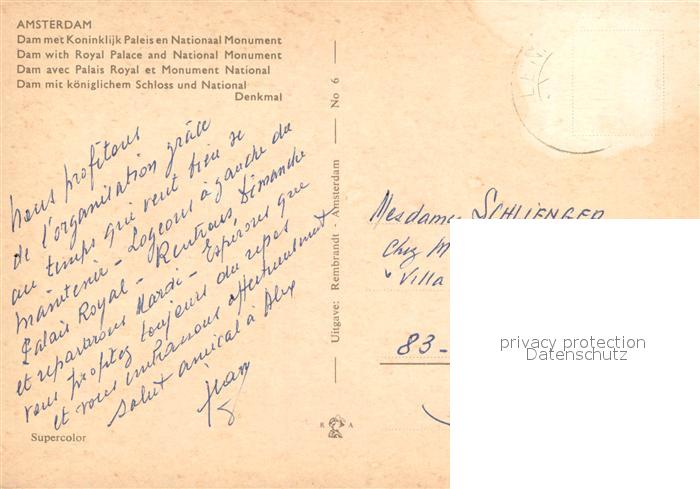 AMSTERDAM
Dam met Koninklijk Paleis en Nationaal Monument
Dam with Royal Palace and National Monument
Dam avec Palais Royal et Monument National
Dam mit königlichem Schloss und National
Denkmal
Nous profitons
de l'organisation grâce
au temps qui veut bien se
maintenir - Logeons à gauche du
Palais Royal - Rentrons Dimanche
et repartirons Mardi - Espérons que
vous profitez toujours du repos
et vous embrassons affectueusement
salut amical à Alex
Jean
Supercolor
Uitgave: Rembrandt - Amsterdam No 6
R A
Mesdames SCHLIENGER
Chez M
Villa
83-
privacy protection
Datenschutz